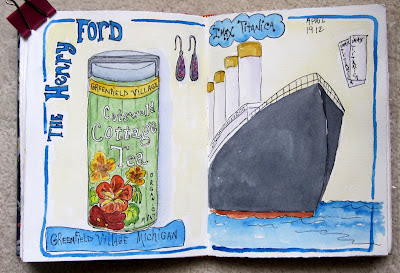 THE HENRY FORD
GREENFIELD VILLAGE
Cotswold
Cottage
Tea
ORGANIC
GREENFIELD VILLAGE MICHIGAN
IMAX TITANICA
APRIL
1912